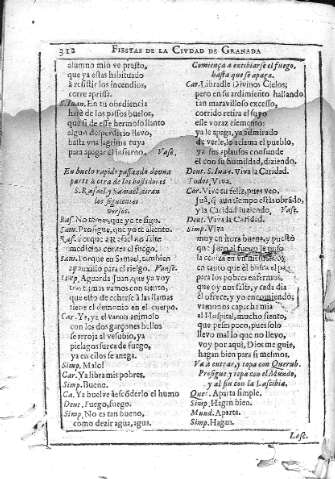 312 FIESTAS DE LA CIVDAD DE GRANADA
alumno mio ve presto,
que ya estas habituado
à resistir los incendios,
corre aprissa.
S. Iuan. En tu obediencia
harè de los passos buelos,
quiçà de esse hermoso llanto
algun desperdicio llevo,
hasta vna lagrima tuya
para apagar el infierno. Vase.
En buelo rapido passando de vna
parte à otra de los bastidores
S. Rafael, y Samael, dirán
los siguientes
versos.
Raf. No temas, que yo te sigo.
Sam. Prosigue, que yo te aliento.
Sam. Porque en Samael, tambien
Simp. Aguarda Juan, que yo voy
tras ti, mas vamos con tiento,
que esto de echarse à las llamas
tiene el demonio en el cuerpo.
Car. Ya, ya el vamos animolo
con los dos garçones bellos
se arroja al vesubio, ya
pielagos surca de fuego,
ya en ellos se anega.
Simp. Malo!
Car. Ya libra mis pobres.
Simp. Bueno.
Ca. Ya buelve à esconderlo el humo
Dent. Fuego, fuego.
Simp. No es tan bueno,
como dezir agua, agua.
Comiença à entibiarse el fuego,
hasta que se apaga.
Car. Libradle Divinos Cielos,
pero en su ardimiento hallando
tan maravilloso excesso,
corrido retira el suyo
esse voraz elemento:
ya le apaga, ya admirado
de verle, lo aclama el pueblo,
ya sus aplausos confunde
èl con su humildad, diziendo.
Dent. S. Iuan. Viva la Caridad.
Todos. Viva.
Car. Vive tu feliz, pues veo,
Juã, q̃ aun tiempo estàs obrãdo,
y la Caridad luziendo, Vase.
Dent. Viva la Caridad.
Simp. Viva
muy en hora buena, y puesto
que Juan al fuego le quitò
en tanto que èl busca el pan
para los pobres enfermos,
que oy nos falta, y cada dia
èl ofrece, y yo encomiendo;
vamonos capacha mia
al Hospital, mucho siento,
que peseis poco, pues solo
llevo mal lo que no llevo,
voy por aqui, Dios me guie,
hagan bien para si mesmos.
Va à entrar, y topa con Querub.
Prosigue y topa con el Mundo,
y al fin con la Lascibia.
Quer. Aparta simple.
Simp. Hagan bien.
Mund. Aparta.
Simp. Hagan.
Lasc.